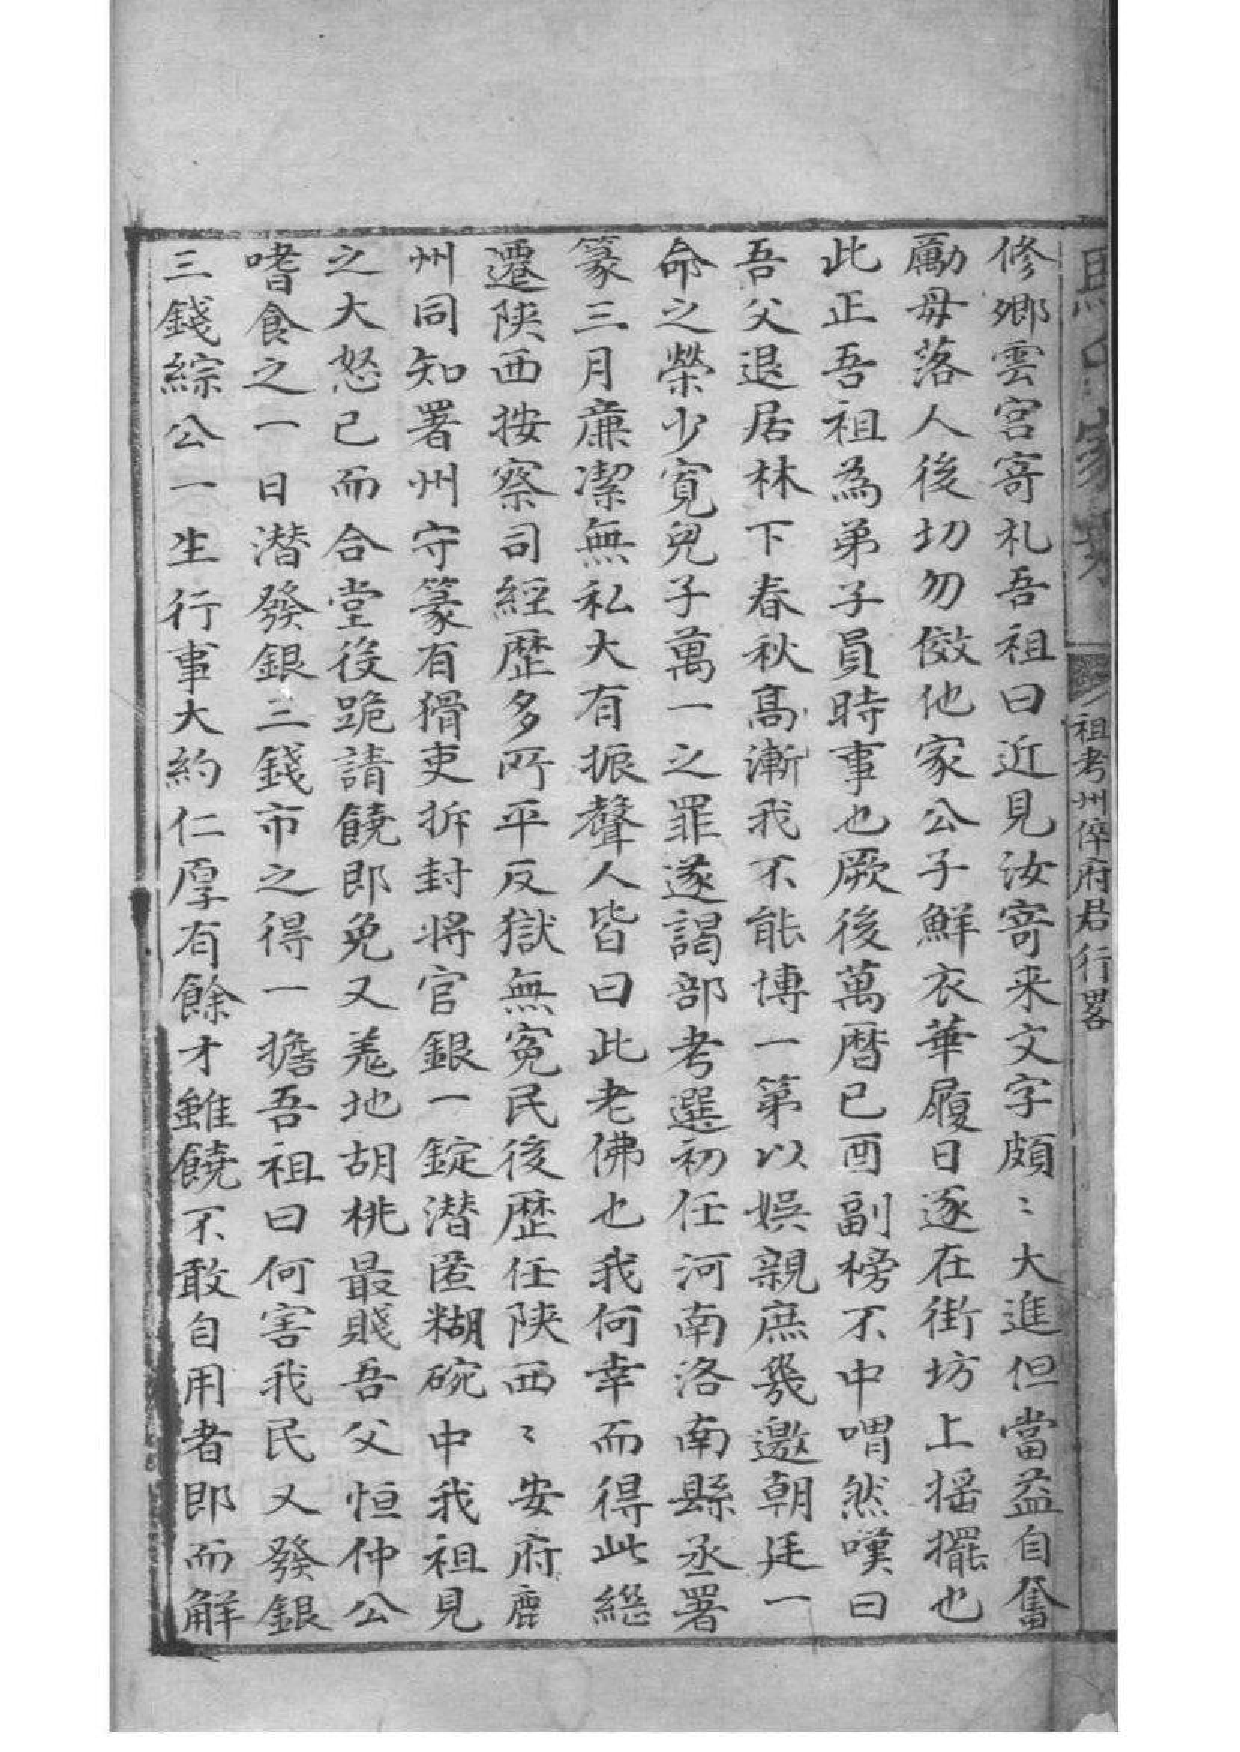 祖考州倅府君行畧
修鄉雲宮寄札吾祖曰近見汝寄来文字頗〻大進但當益自奮
勵毋落人後切勿傚他家公子鮮衣華履日逐在街坊上搖擺也
此正吾祖為弟子員時事也厥後萬曆己酉副榜不中喟然嘆曰
吾父退居林下春秋高漸我不能博一第以娛親庶幾邀朝廷一
命之榮少寬兒子萬一之罪遂謁部考選初任河南洛南縣丞署
篆三月廉潔無私大有振聲人皆曰此老佛也我何幸而得此縂
遷陝西按察司經歷多所平反獄無冤民後歷任陝西〻安府鹿
州同知署州守篆有猾吏拆封將官銀一錠潛匿糊碗中我祖見
之大怒已而合堂後跪請饒即免又羗地胡桃最賤吾父恒仲公
嗜食之一日潛發銀三錢市之得一擔吾祖曰何害我民又發銀
三錢綜公一生行事大約仁厚有餘才雖饒不敢自用者即而解